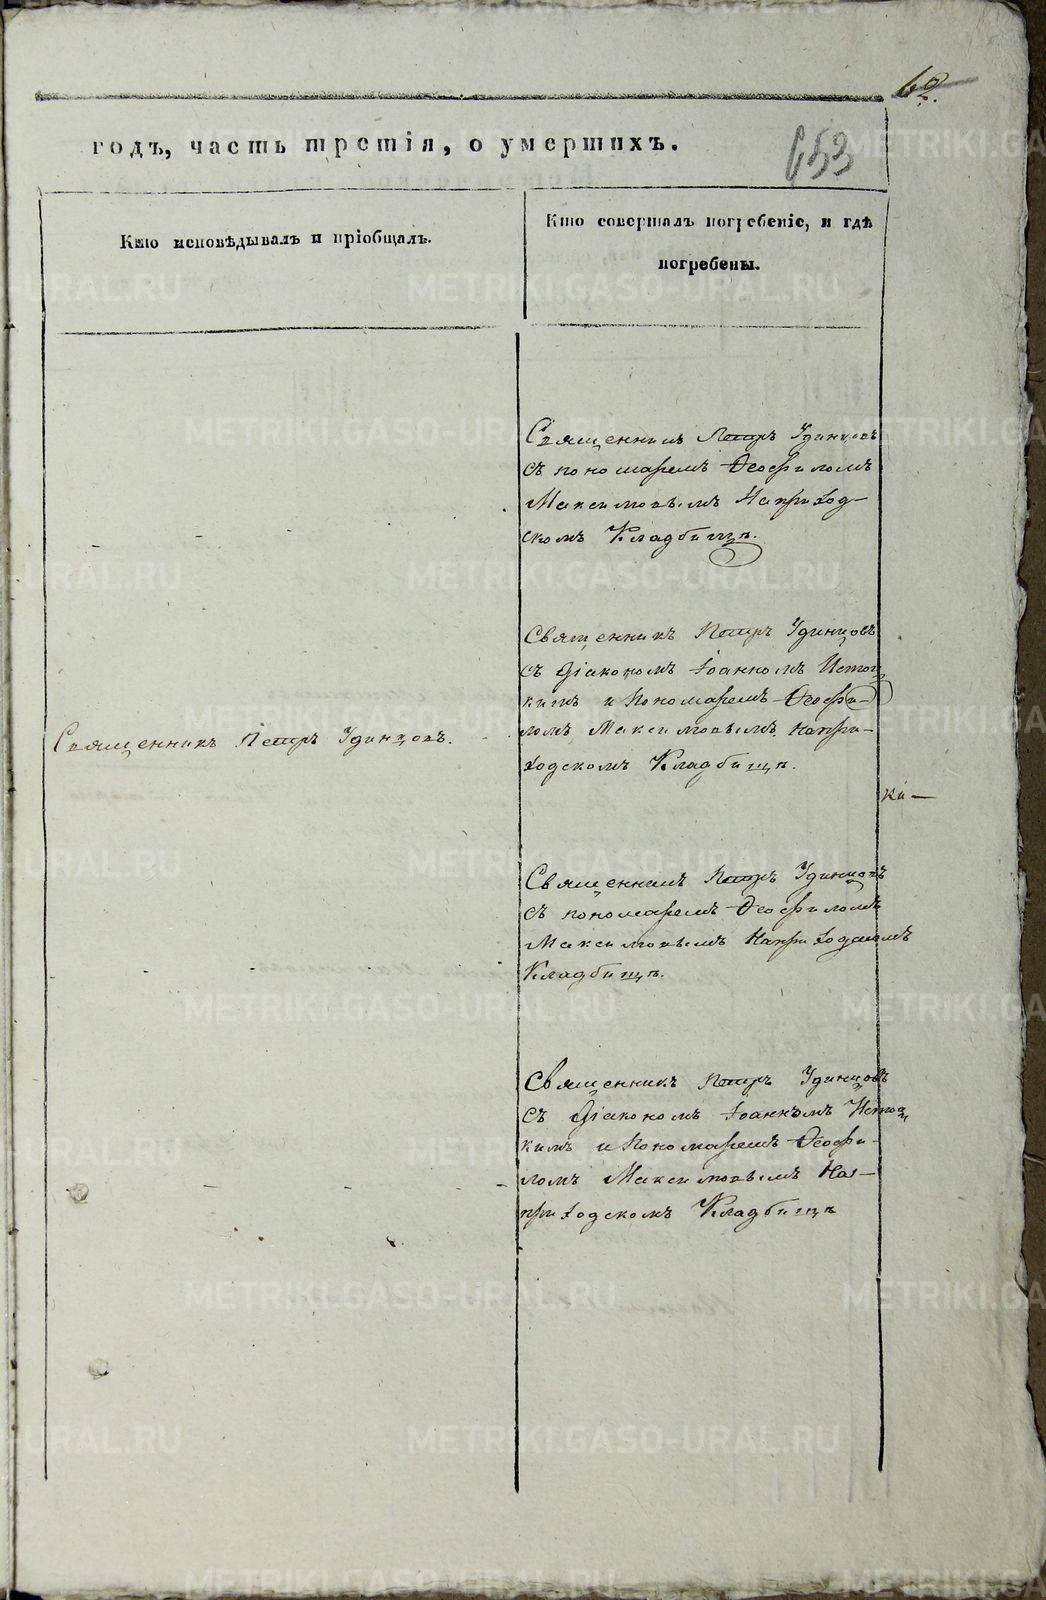 60.
653
годъ, часть третія, о умершихъ.
Кто исповѣдывалъ и пріобщалъ.
Кто совершалъ погребеніе, и гдѣ
погребены.
Священникъ Петръ Удинцовъ
съ пономаремъ Ѳеофиломъ
Максимовымъ На приход-
скомъ Кладбищѣ.
Священникъ Петръ Удинцовъ
съ Діакономъ Іоанномъ
кимъ и Пономаремъ Ѳеофи-
ломъ Максимовымъ На при-
ходскомъ Кладбищѣ.
Священникъ Петръ Удинцовъ.
ка-
Священникъ Петръ Удинцовъ
съ пономаремъ Ѳеофиломъ
Максимовымъ На приходскомъ
Кладбищѣ.
Священникъ Петръ Удинцовъ
съ Діакономъ Іоанномъ
кимъ и Пономаремъ Ѳеофи-
ломъ Максимовымъ На-
приходскомъ Кладбищѣ
METRIKI.GASO-URAL.RU